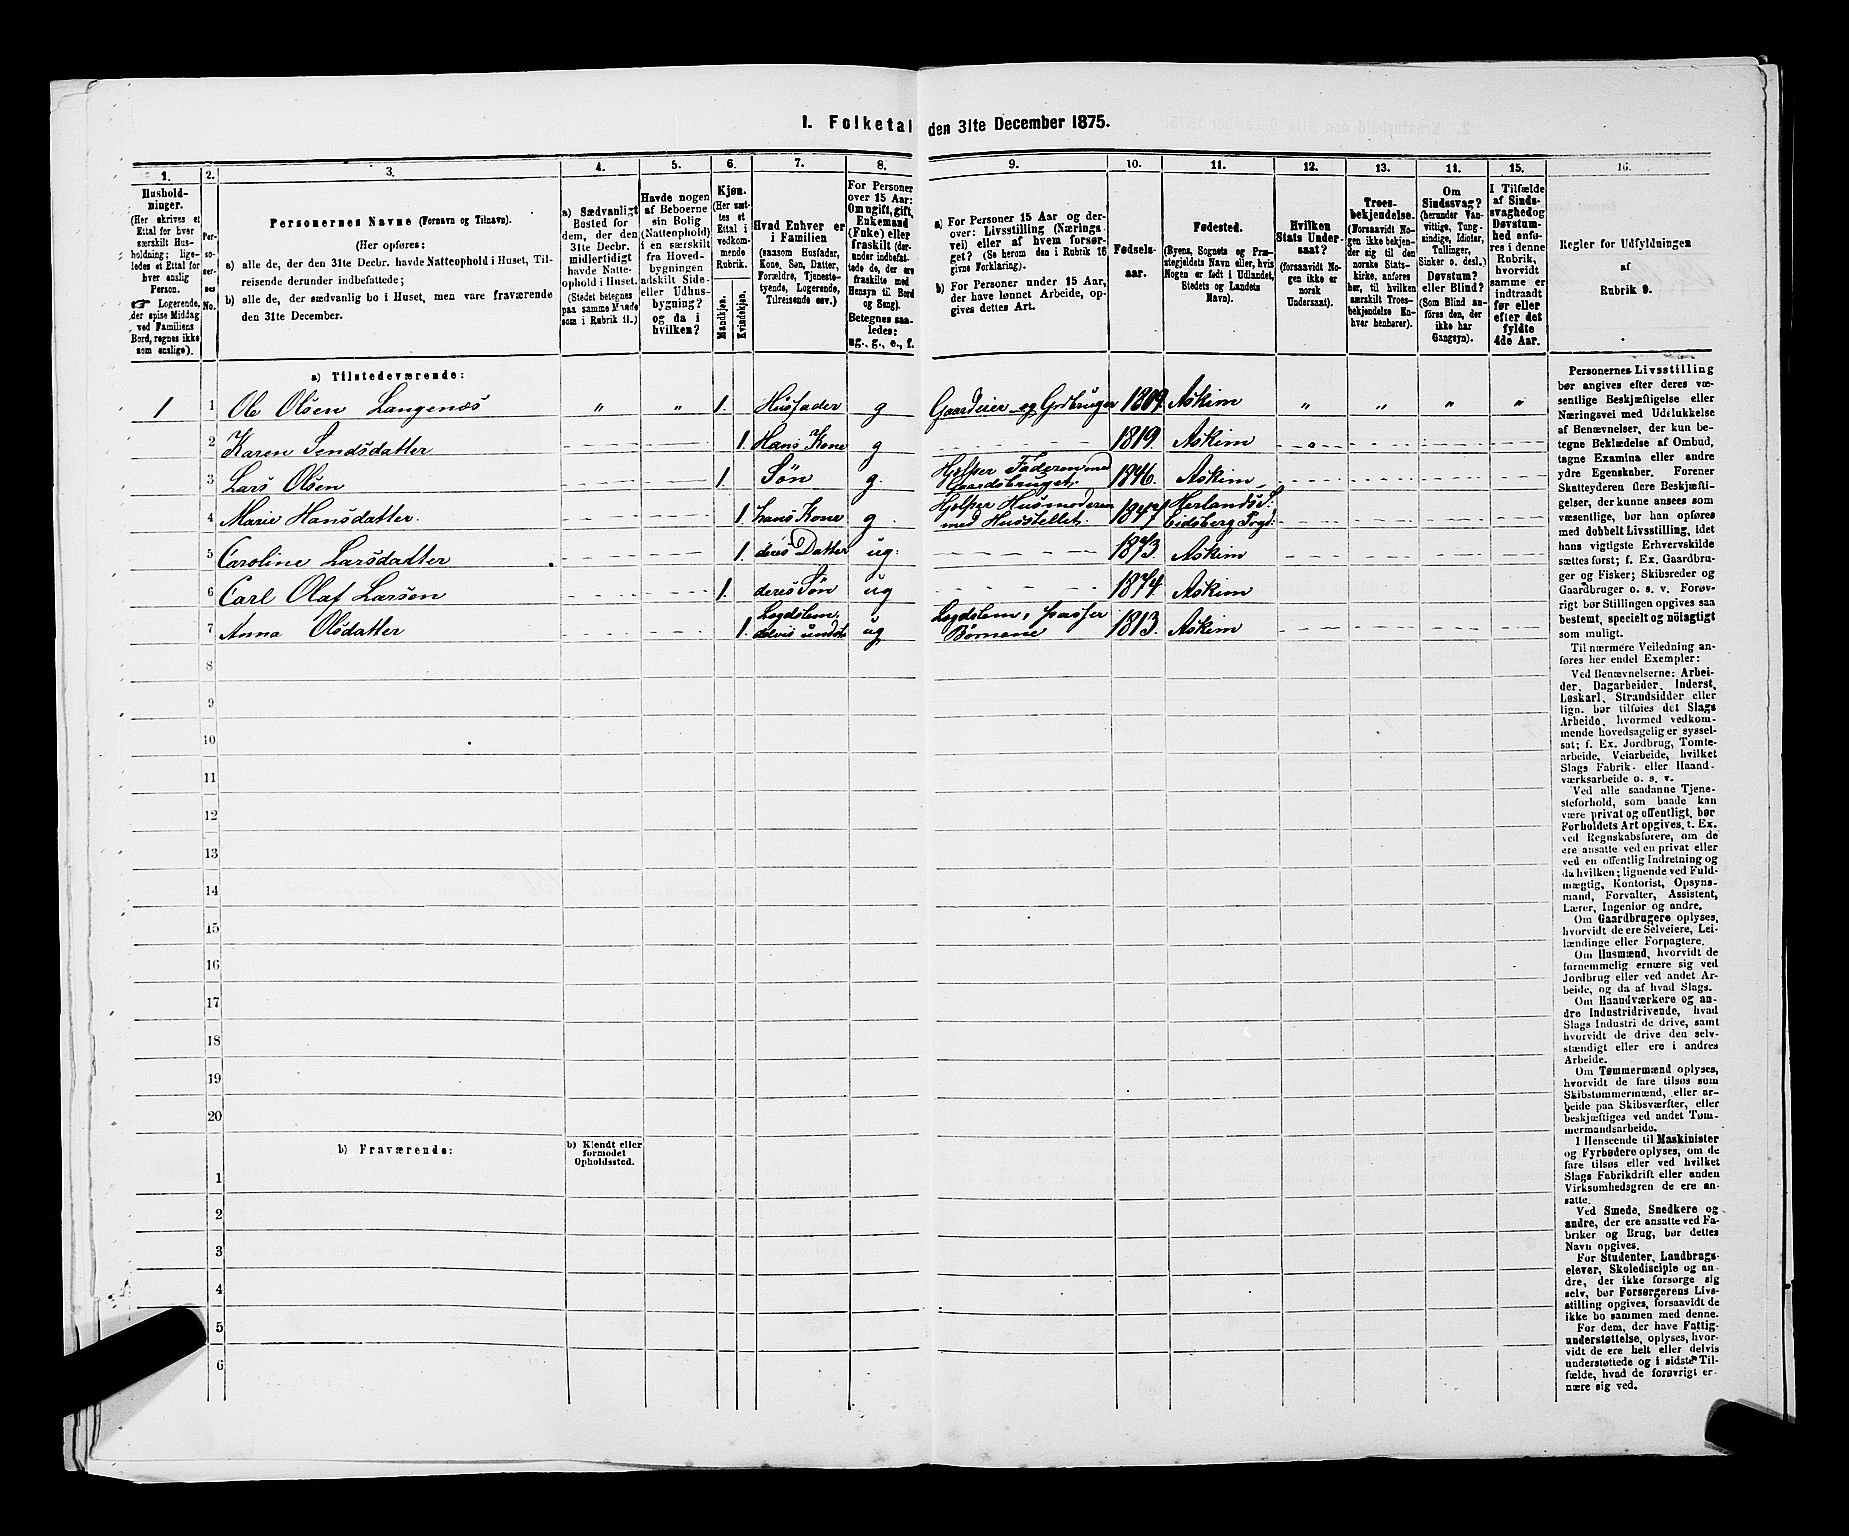 1. Folketal den 31te December 1875.
1.
2.
3.
4.
5.
6.
7.
8.
9.
10.
11.
12.
13.
14.
15.
16.
Hushold-
ninger.
(Her skrives et
Ettal for hver
særskilt Hus-
holdning; lige-
ledes et Ettal for
hver enslig
Person.
☞ Logerende,
der spise Middag
ved Familiens
Bord, regnes ikke
som enslige).
Per-
so-
ner-
nes
No.
Personernes Navne (Fornavn og Tilnavn).
(Her opføres:
a) alle de, der den 31te Decbr. havde Natteophold i Huset, Til-
reisende derunder indbefattede;
b) alle de, der sædvanlig bo i Huset, men vare fraværende
den 31te December.
a) Sædvanligt
Bosted for
dem, der den
31te Decbr.
midlertidigt
havde Natte-
ophold i Huset.
(Stedet betegnes
paa samme Maade
som i Rubrik 11.)
Havde nogen
af Beboerne
sin Bolig
(Natteophold)
i en særskilt
fra Hoved-
bygningen
adskilt Side-
eller Udhus-
bygning?
og da i
hvilken?
Kjøn.
(Her sæt-
tes et
Ettal i
vedkom-
mende
Rubrik.
Mandkjøn.
Kvindekjøn.
Hvad Enhver er
i Familien
(saasom Husfader,
Kone, Søn, Datter,
Forældre, Tjeneste-
tyende, Logerende,
Tilreisende osv.)
For Personer
over 15 Aar:
Om ugift, gift,
Enkemand
(Enke) eller
fraskilt (der-
under indbefat-
tede de, der ere
fraskilte med
Hensyn til Bord
og Seng).
Betegnes saa-
ledes:
ug., g., e., f.
a) For Personer 15 Aar og der-
over: Livsstilling (Nærings-
vei) eller af hvem forsør-
get? (Se herom den i Rubrik 16
givne Forklaring).
b) For Personer under 15 Aar,
der have lønnet Arbeide, op-
gives dettes Art.
Fødsels-
aar.
Fødested.
(Byens, Sognets og Præ-
stegjeldets Navn eller, hvis
Nogen er født i Udlandet,
Stedets og Landets
Navn).
Hvilken
Stats Under-
saat?
(forsaavidt No-
gen ikke er
norsk
Undersaat).
Troes-
bekjendelse.
(Forsaavidt No-
gen ikke bekjen-
der sig til den
norske Stats-
kirke, anføres
her, til hvilken
særskilt Troes-
bekjendelse En-
hver henhører).
Om
Sindssvag?
(herunder Van-
vittige, Tung-
sindige, Idioter,
Tullinger,
Sinker o. desl.)
Døvstum?
eller Blind?
(Som Blind an-
føres den, der
ikke har
Gangsyn).
I Tilfælde
af Sinds-
svaghed og
Døvstum-
hed anfø-
res i denne
Rubrik,
hvorvidt
samme er
indtraadt
før eller
efter det
fyldte
4de Aar.
Regler for Udfyldningen
af
Rubrik 9.
a) Tilstedeværende:
1 1 Ole Olsen Langenæs " " 1. Husfader g Gaardeier og Grdbruger 1809 Askim " " " "
2 Karen Sendsdatter 1. Hans Kone g 1819. Askim
3 Lars Olsen 1. Søn g. Hjelper Faderen med Gaardsbruget. 1846. Askim
4 Marie Hansdatter. 1. hans Kone g. Hjelper Husmoderen med Husstellet. 1847 Herlands S. Eidsberg Prgd:
5 Caroline Larsdatter 1. deres Datter ug: 1873. Askim
6 Carl Olaf Larsen 1. deres Søn ug 1874. Askim
7 Anna Olsdatter 1. Lægdslem, delvis underst. ug Lægdslem, passer Børnene 1813. Askim
8
9
10
11
12
13
14
15
16
17
18
19
20
b) Fraværende:
b) Kjendt eller
formodet
Opholdssted.
1
2
3
4
5
6
Personernes Livsstilling
bør angives efter deres væ-
sentlige Beskjæftigelse eller
Næringsvei med Udelukkelse
af Benævnelser, der kun be-
tegne Beklædelse af Ombud,
tagne Examina eller andre
ydre Egenskaber. Forener
Skatteyderen flere Beskjæfti-
gelser, der kunne ansees som
væsentlige, bør han opføres
med dobbelt Livsstilling, idet
hans vigtigste Erhvervskilde
sættes først; f. Ex. Gaardbru-
ger og Fisker; Skibsreder og
Gaardbruger o. s. v. Forøv-
rigt bør Stillingen opgives saa
bestemt, specielt og nøiagtigt
som muligt.
Til nærmere Veiledning an-
føres her endel Exempler:
Ved Benævnelserne: Arbei-
der, Dagarbeider, Inderst,
Løskarl, Strandsidder eller
lign. bør tilføies det Slags
Arbeide, hvormed vedkom-
mende hovedsagelig er syssel-
sat; f. Ex. Jordbrug, Tomte-
arbeide, Veiarbeide, hvilket
Slags Fabrik- eller Haand-
værksarbeide o. s. v.
Ved alle saadanne Tjene-
steforhold, som baade kan
være privat og offentligt, bør
Forholdets Art opgives, t. Ex.
ved Regnskabsførere, om de
ere ansatte ved en privat eller
ved en offentlig Indretning og
da hvilken; lignende ved Fuld-
mægtig, Kontorist, Opsyns-
mand, Forvalter, Assistent,
Lærer, Ingeniør og andre.
Om Gaardbrugere oplyses,
hvorvidt de ere Selveiere, Lei-
lændinge eller Forpagtere.
Om Husmænd, hvorvidt de
fornemmelig ernære sig ved
Jordbrug eller ved andet Ar-
beide, og da af hvad Slags.
Om Haandværkere og an-
dre Industridrivende, hvad
Slags Industri de drive, samt
hvorvidt de drive den selv-
stændigt eller ere i andres
Arbeide.
Om Tømmermænd oplyses,
hvorvidt de fare tilsøs som
Skibstømmermænd, eller ar-
beide paa Skibsværfter, eller
beskjæftiges ved andet Tøm-
mermandsarbeide.
I Henseende til Maskinister
og Fyrbødere oplyses, om de
fare tilsøs eller ved hvilket
Slags Fabrikdrift eller anden
Virksomhedsgren de ere an-
satte.
Ved Smede, Snedkere og
andre, der ere ansatte ved Fa-
briker og Brug, bør dettes
Navn opgives.
For Studenter, Landbrugs-
elever, Skoledisciple og an-
dre, der ikke forsørge sig
selv, bør Forsørgerens Livs-
stilling opgives, forsaavidt de
ikke bo sammen med denne.
For dem, der have Fattig-
understøttelse, oplyses, hvor-
vidt de ere helt eller delvis
understøttede og i sidste Til-
fælde, hvad de forøvrigt er-
nære sig ved.